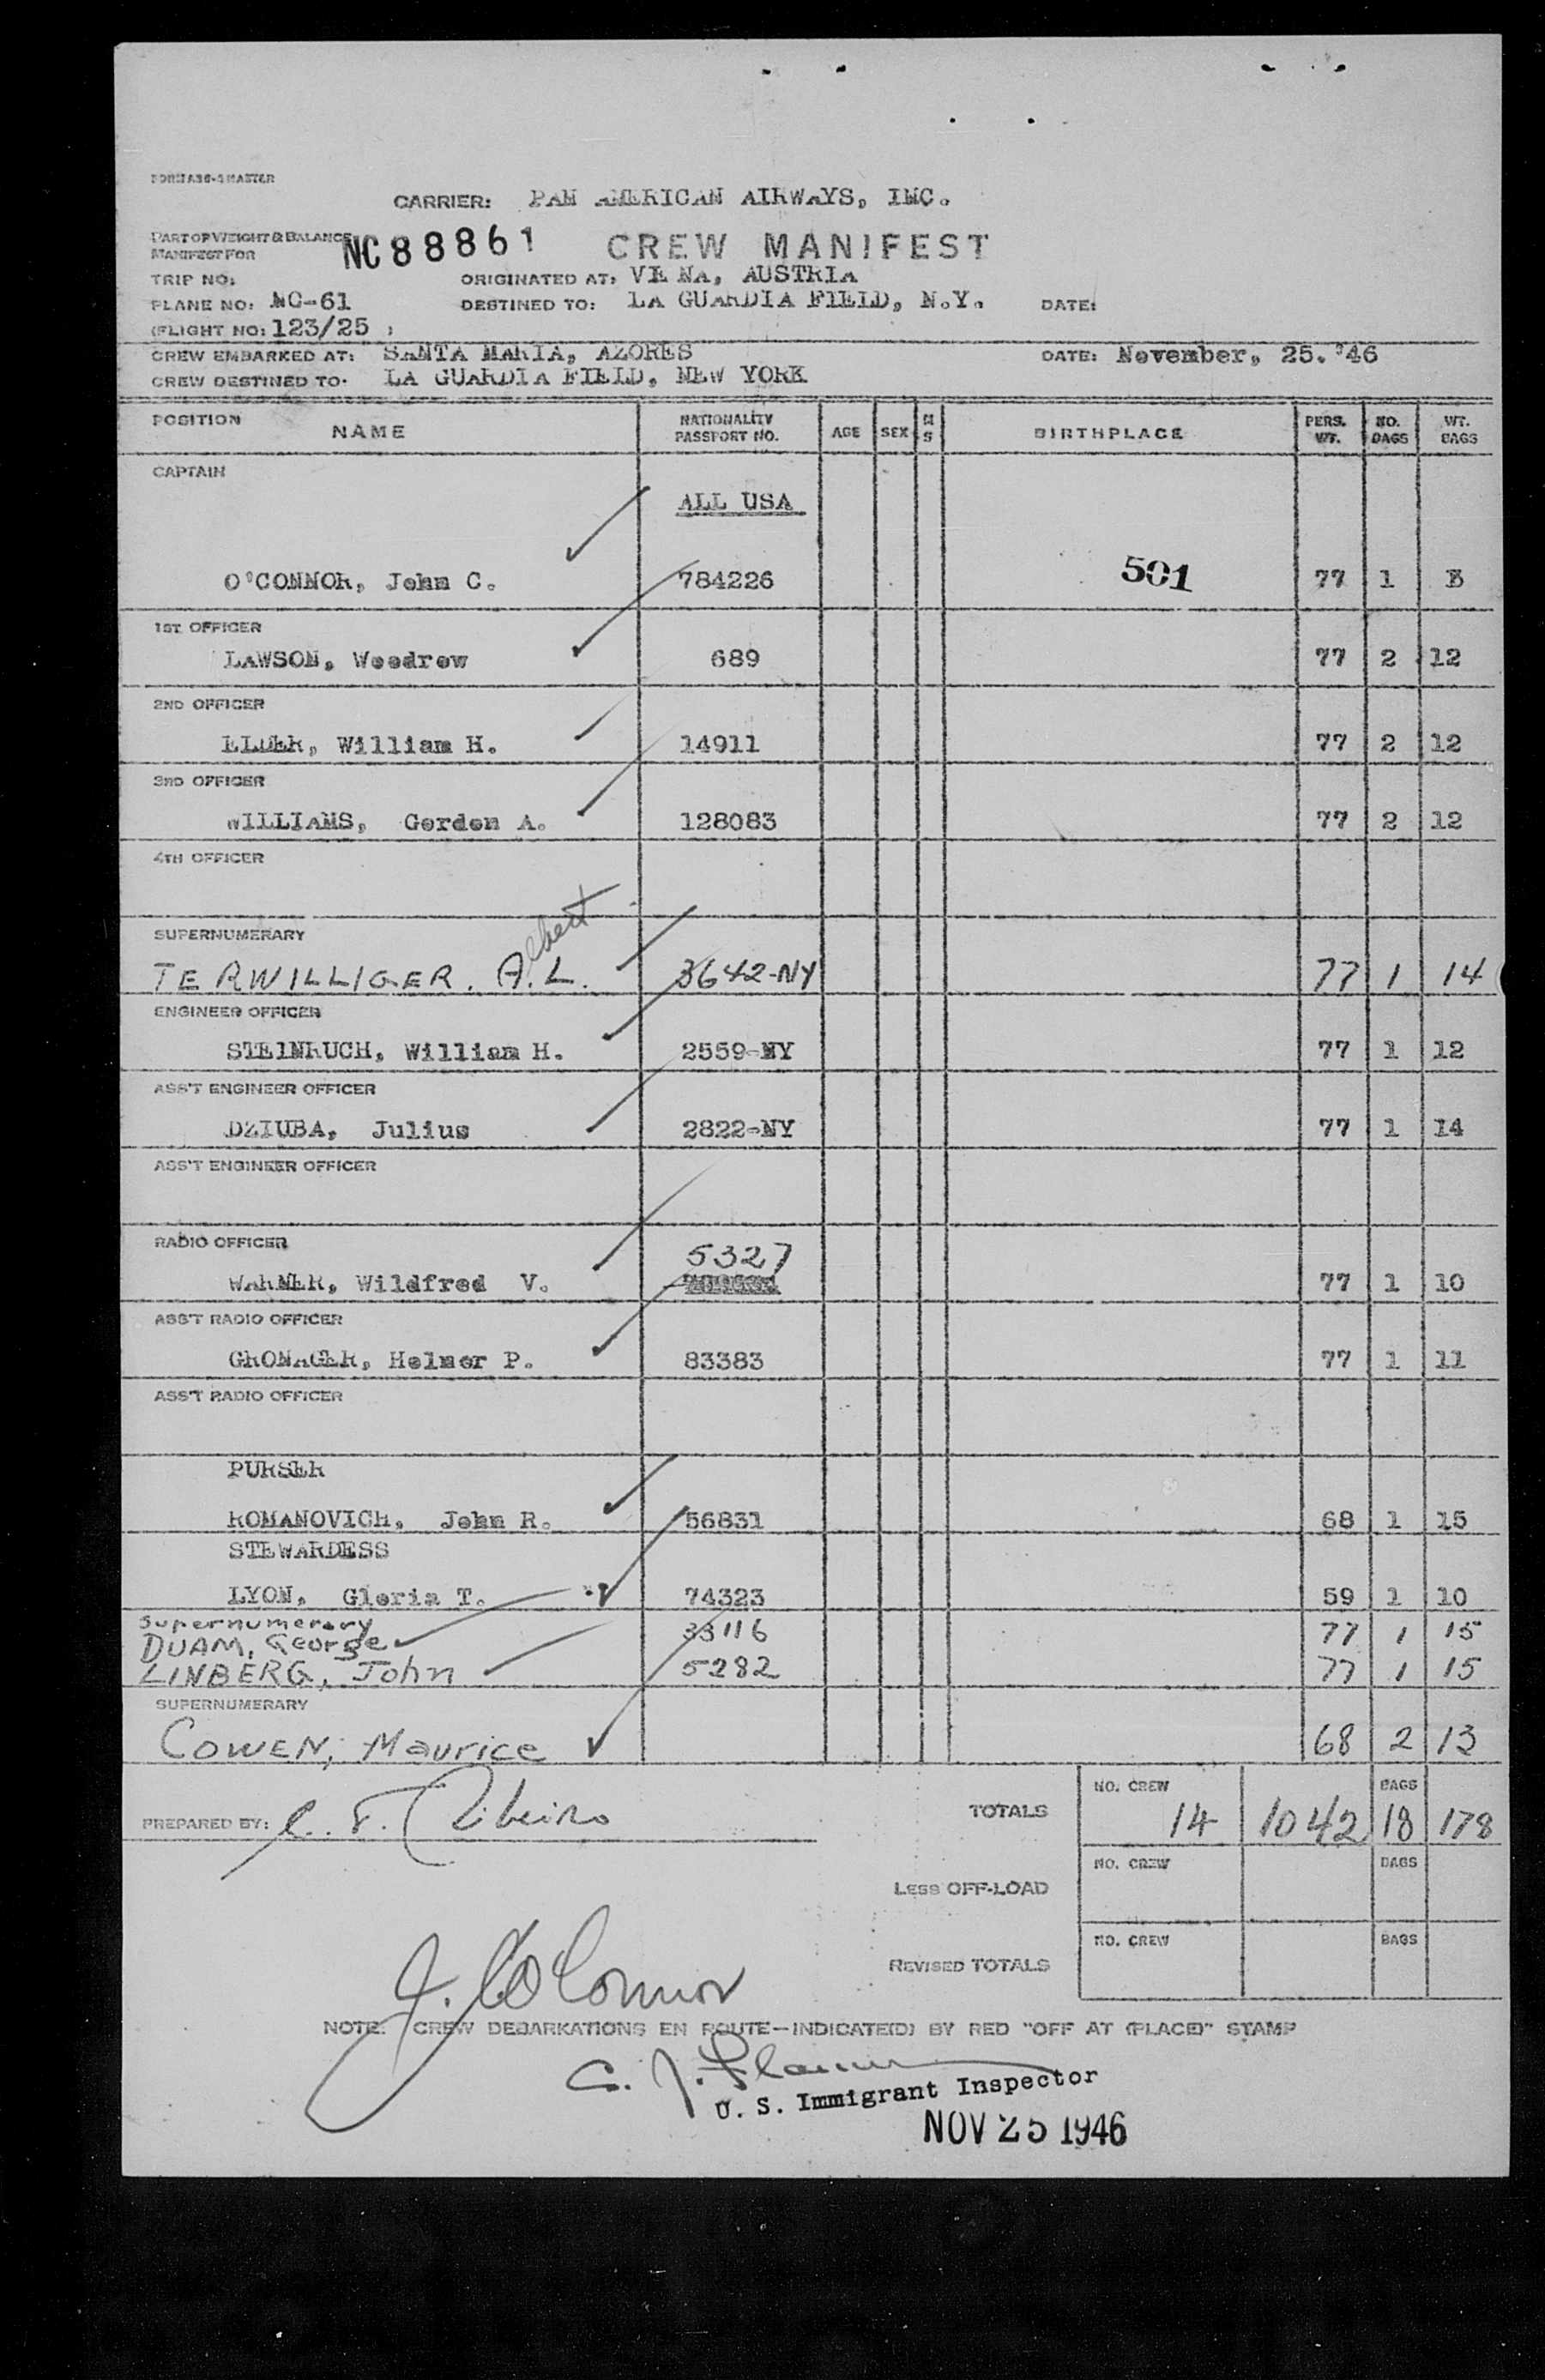 FORM A36-4 MASTER
CARRIER: PAN AMERICAN AIRWAYS, INC.
PART OF WEIGHT & BALANCE
MANIFEST FOR
NC88861 CREW MANIFEST
TRIP NO: ORIGINATED AT: VIE NA, AUSTRIA
PLANE NO: NC-61 DESTINED TO: LA GUARDIA FIELD, N.Y. DATE:
(FLIGHT NO: 123/25 )
CREW EMBARKED AT: SANTA MARIA, AZORES DATE: November, 25. '46
CREW DESTINED TO. LA GUARDIA FIELD, NEW YORK
POSITION NAME NATIONALITY PASSPORT NO. AGE SEX M S BIRTHPLACE PERS. WT. NO. BAGS WT. BAGS
CAPTAIN
ALL USA
501
O'CONNOR, John C. 784226 77 1 8
1ST OFFICER
LAWSON, Woodrow 689 77 2 12
2ND OFFICER
ELDER, William H. 14911 77 2 12
3RD OFFICER
WILLIAMS, Gordon A. 128083 77 2 12
4TH OFFICER
SUPERNUMERARY
Albert
TERWILLIGER. A.L. 3642-NY 77 1 14
ENGINEER OFFICER
STEINRUCH, William H. 2559-NY 77 1 12
ASS'T ENGINEER OFFICER
DZIUBA, Julius 2822-NY 77 1 14
ASS'T ENGINEER OFFICER
RADIO OFFICER
5327
WARNER, Wildfred V. 77 1 10
ASS'T RADIO OFFICER
GRONAGER, Helmer P. 83383 77 1 11
ASS'T RADIO OFFICER
PURSER
ROMANOVICH, John R. 56831 68 1 15
STEWARDESS
LYON, Gloria T. 74323 59 1 10
Supernumerary
DUAM, George 33116 77 1 15
LINBERG, John 5282 77 1 15
SUPERNUMERARY
COWEN, Maurice 68 2 13
NO. CREW BAGS
PREPARED BY: C. F. Ribeiro TOTALS 14 1042 18 178
NO. CREW BAGS
LESS OFF-LOAD
NO. CREW BAGS
REVISED TOTALS
J. C. O'Connor
NOTE: CREW DEBARKATIONS EN ROUTE-INDICATE(D) BY RED "OFF AT (PLACE)" STAMP
C. J.
U. S. Immigrant Inspector
NOV 25 1946